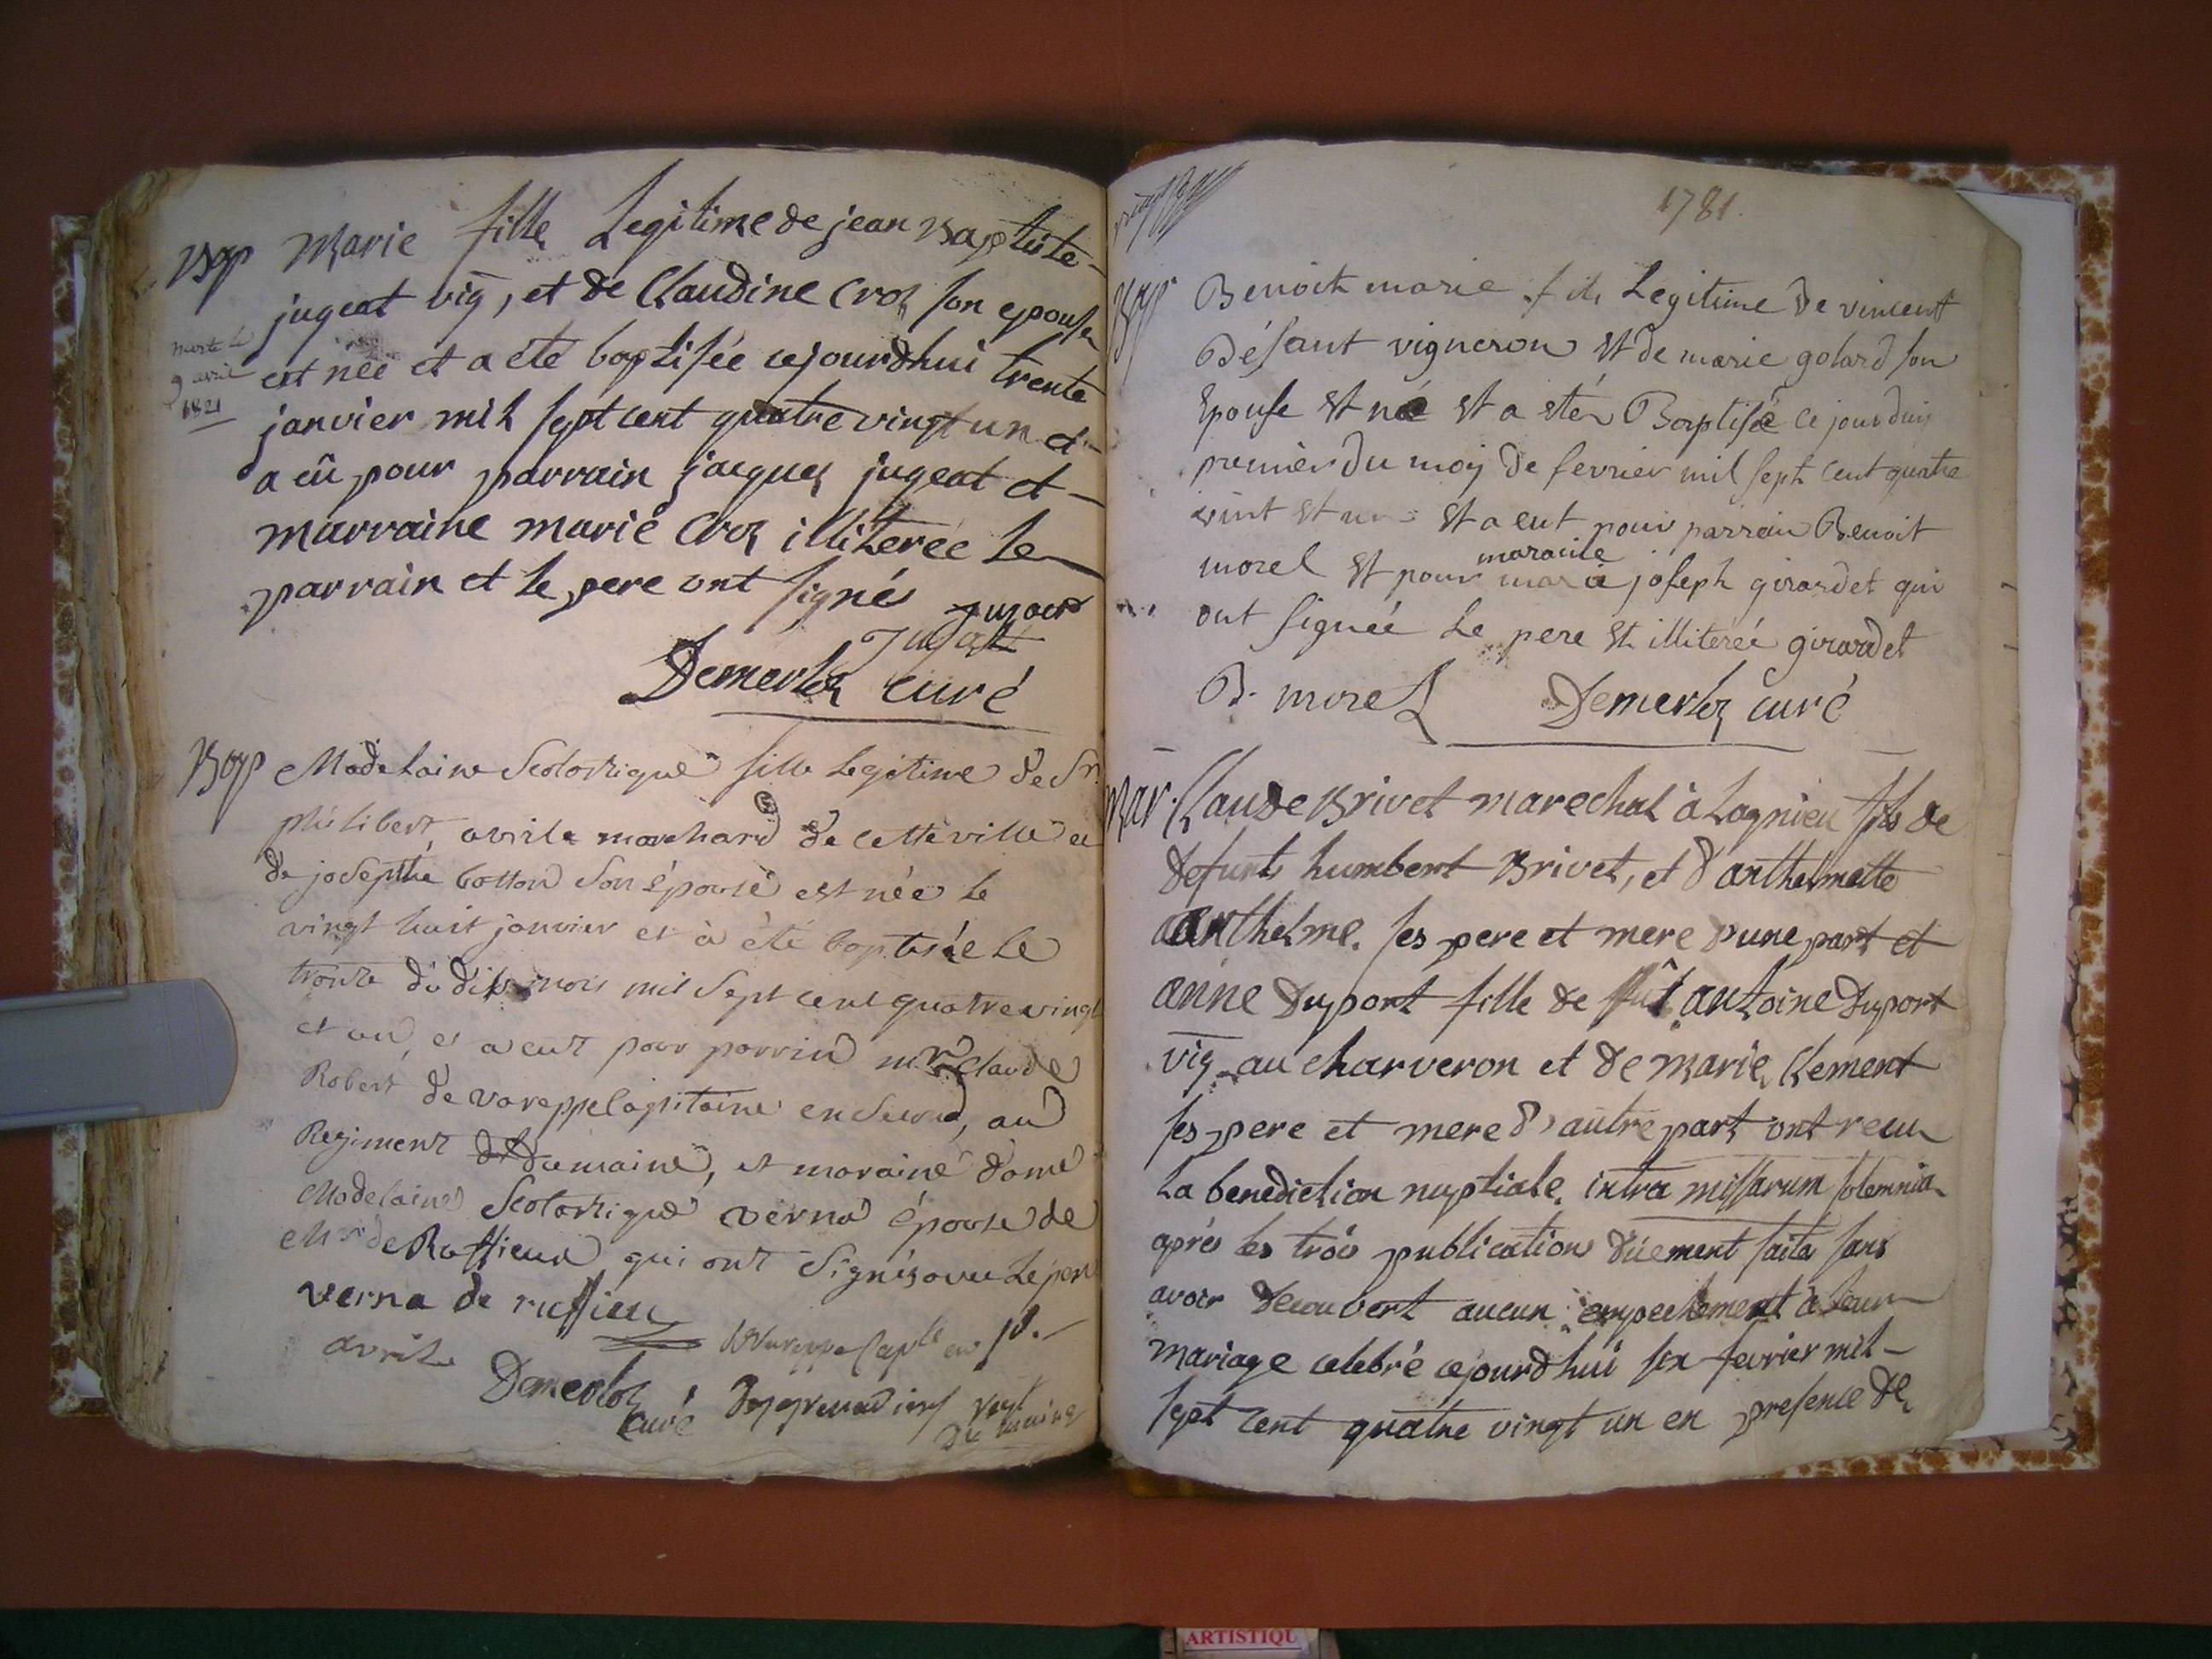 Bap Marie fille Legitime de jean Baptiste
jugeat vig, et de Claudine Croz son epouse
est née et a été baptisée cejourdhui trente
janvier mil sept cent quatre vingt un et
a eû pour parrain jacques jugeat et
marraine marie Croz illiterée le
parrain et le pere ont signé jujat
Jujat
Demerloz curé
morte le
9 avril
1821
Bap Madelaine Scolastique fille legitime de Sr
philibert avrile marchand de cette ville et
de josepthe botton son épouse est née le
vingt huit janvier et à été baptisée le
trente du dit mois mil sept cent quatre vingt
et un, et a eut pour parrin mr Claude
Robert de vareppe Capitaine en second, au
Regiment dumaine, et maraine dame
Madelaine Scolastique verna épouse de
Mr de Ruffieux qui ont signés avec le pere
verna de ruffieu
avrile Vareppe Capte en sd.
Demerloz
curé
du maine
1781.
Bap Benoit marie fils Legitime de vincent
Désant vigneron et de marie golard son
Epouse et né et a eté Baptisé ce jourduis
premier du moy de fevrier mil sept cent quatre
vint et un et a eut pour parrain Benoit
morel et pour maraine joseph girardet qui
ont signeé le pere et illiterée girardet
B. morel Demerloz curé
Mar. Claude Brivet marechal à Lagnieu fils de
defunt humbert Brivet, et d'anthelmette
anthelme. ses pere et mere d'une part et
anne Duport fille de fût antoine Duport
vig. au charveron et de marie Clement
ses pere et mere d'autre part ont recu
La benediction nuptiale intra missarum solemnia
aprés les trois publications düement faites sans
avoir decouvert aucun empechement à leur
mariage celebré cejourdhui six fevrier mil
sept cent quatre vingt un en presence de
ARTISTIQU